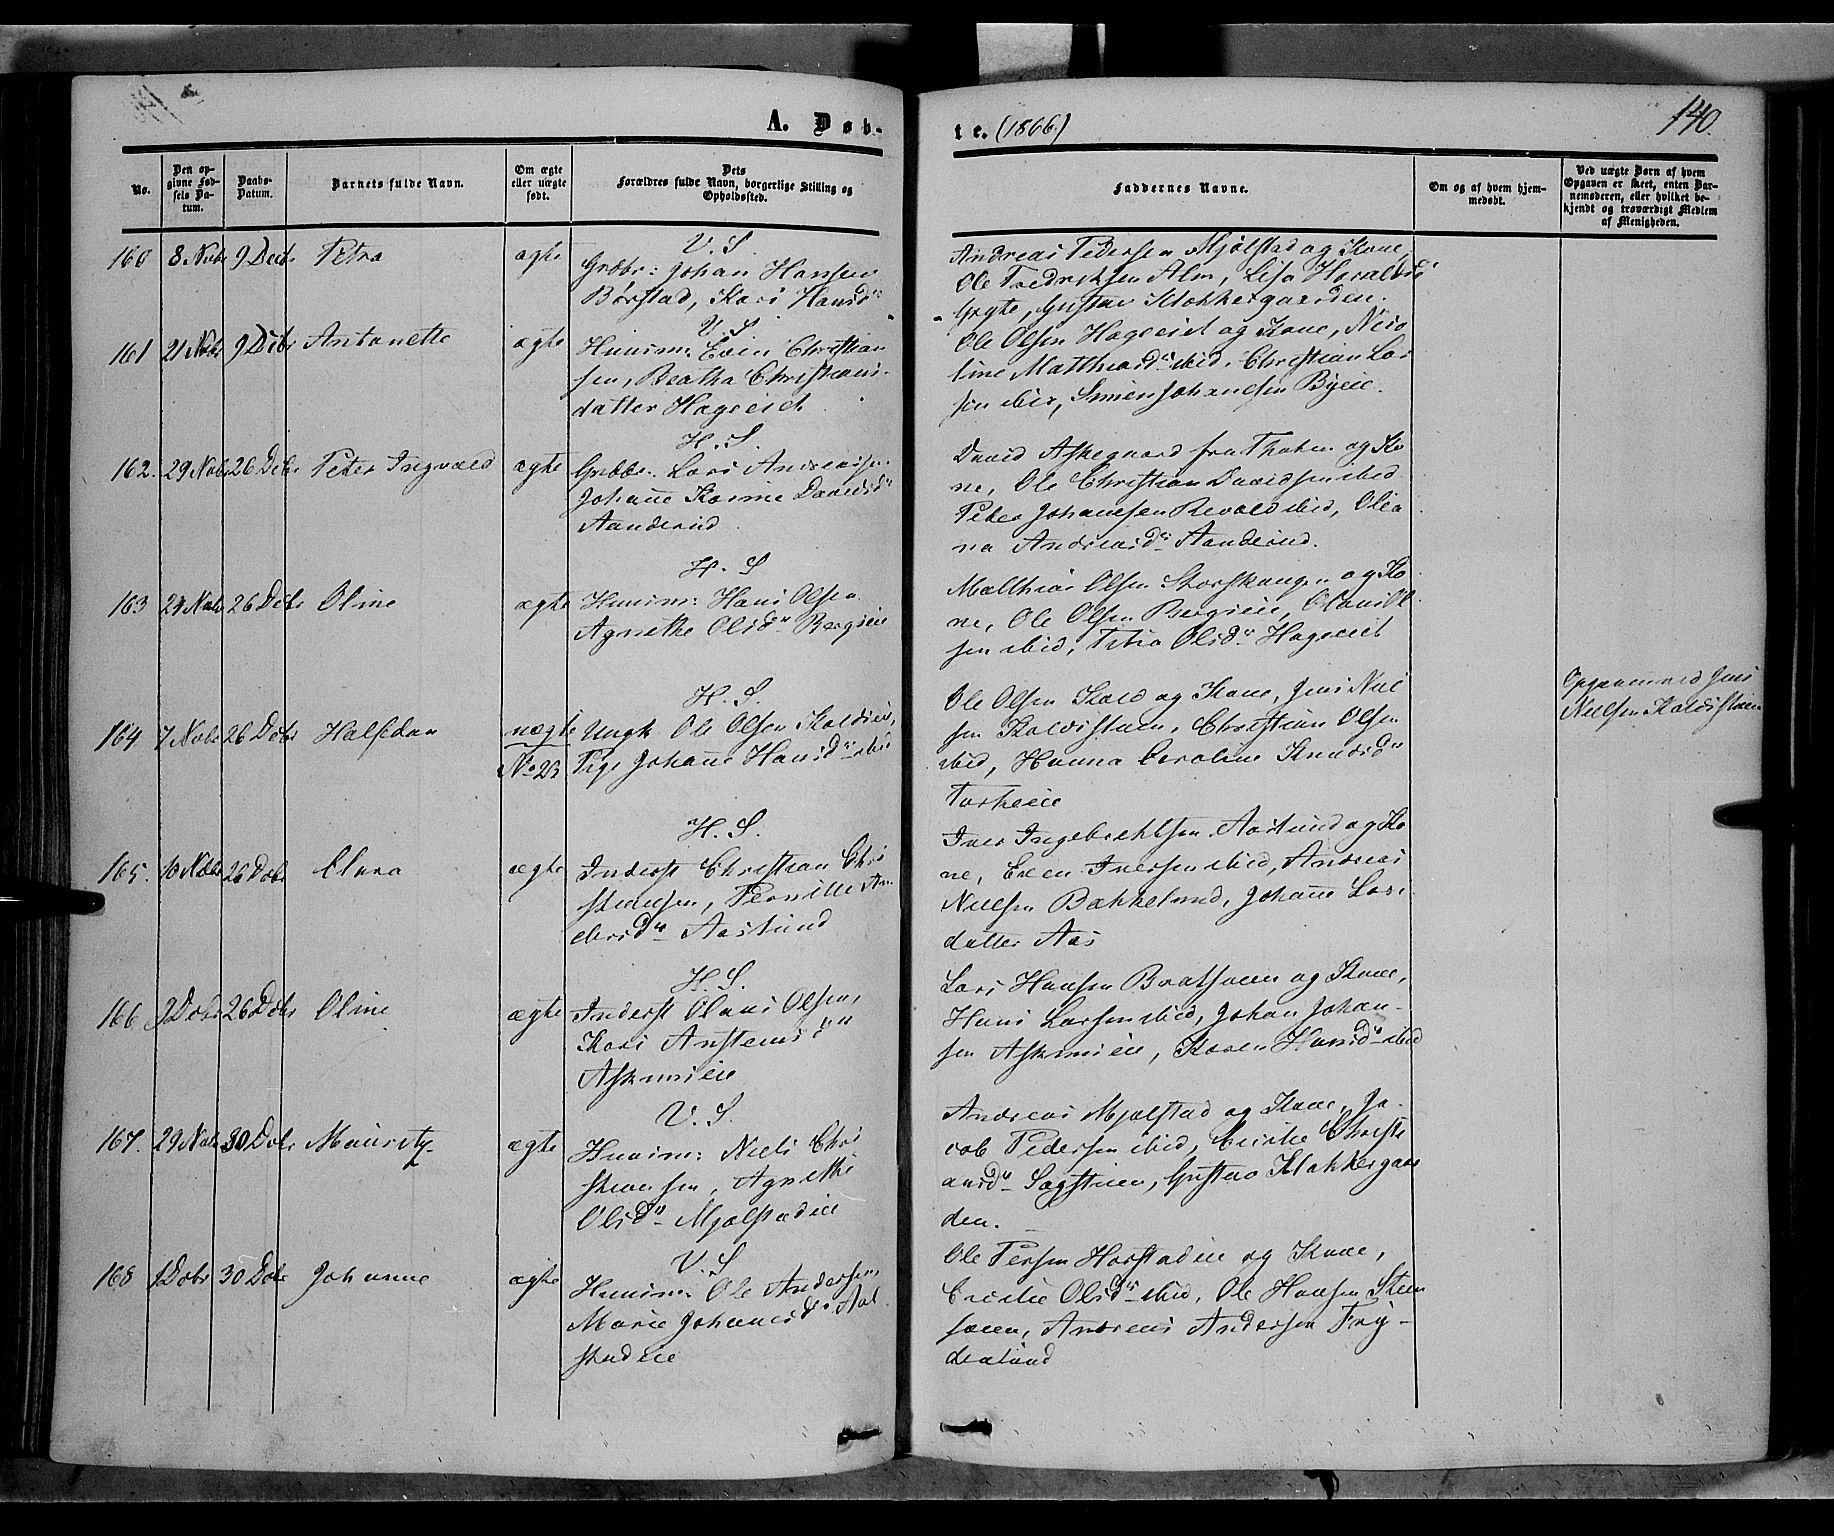 A. Døb-
te. (1866.)
140.
No.
Den op-
givne Fød-
sels Da-
tum.
Daabs-
Datum.
Barnets fulde Navn.
Om ægte
eller uægte
født.
Dets
Forældres fulde Navn, borgerlige Stilling og
Opholdssted.
Faddernes Navne.
Om og af hvem hjem-
medøbt.
Ved uægte Børn af hvem
Opgaven er skeet, enten Bar-
nemoderen, eller hvilket be-
kjendt og troværdigt Medlem
af Menigheden.
160 8 Novbr 9 Decbr Petra ægte
V. S.
Grdbr: Johan Hansen
Børstad, Kari Hansdr
Andreas Pedersen Mjølstad og Kone,
Ole Fredriksen Alm, Lisa Haralds
Gustav Klokkergaarden.
161 21 Novbr 9 Debr Antonette ægte
V. S
Huusm: Even Christian
sen, Beatha Christians-
datter Hageeiet
Ole Olsen Hageeiet og Kone, Nico
line Matthiasdr ibid, Christian Lar
sen ibid, Simen Johansen Byeie.
162. 29 Novbr 26 Debr Peter Ingvald ægte
H. S.
Grdbr. Lars Andreassen
Johanne Karine Davidsdr
Aanderud
David Askegaard fra Thoten og Ko
ne, Ole Christian Davidsen ibid
Peter Johansen Revold ibid, Olea
na Andreasdr Aanderud.
163 24 Novbr 26 Debr Oline ægte
H. S
Huusm: Hans Olsen
Agnethe Olsdr Bergseie
Matthias Olsen Storskangen og Ko
ne, Ole Olsen Bergseie, Ole
sen ibid, Olsdr Hageeiet
164 7 Novbr 26 Debr Halfdan uægte
No 23
H. S.
Ungk. Ole Olsen Koldseie,
Pige Johanne Hansdr ibid
Ole Olsen Kold og Kone, Jens Niel
sen Koldstuen, Christian Olsen
ibid, Hanna Caroline Knudsdr
Torkeeie
Opgaven ved Jens
Nielsen Koldstuen
165. 10 Novbr 26 Debr Clara ægte
H. S.
Inderst Christian Chri
stiansen, Pernille An
dersdr Aaslund
Iver Ingebrethsen Aaslund og Ko
ne, Even Iversen ibid, Andreas
Nielsen Bakkelund, Johanne Lars
datter Aas
166 9 Debr 26 Debr Oline ægte
H. S.
Inderst Olaus Olsen,
Kari Anstensdr
Askimseie
Lars Hansen Bratsveen og Kone,
Hans Larsen ibid, Johan Johan-
sen Askimseie, Karen Hansdr ibid
167. 29 Novbr 30 Debr Mauritz ægte
V. S.
Huusm: Niels Chri
stiansen, Agnethe
Olsdr Mjølstadeie
Andreas Mjølstad og Kone, Ja-
cob Pedersen ibid, Cecilie Christi
ansdr Sagstuen, Gustav Klokkergaar
den.
168 1 Debr 30 Debr Johanne ægte
V. S
Huusm: Ole Andersen,
Marie Johannesdr Aal
stadeie
Ole Persen Horstadeie og Kone,
Cecilie Olsdr ibid, Ole Hansen Steen
sveen, Andreas Andersen Fry-
denlund